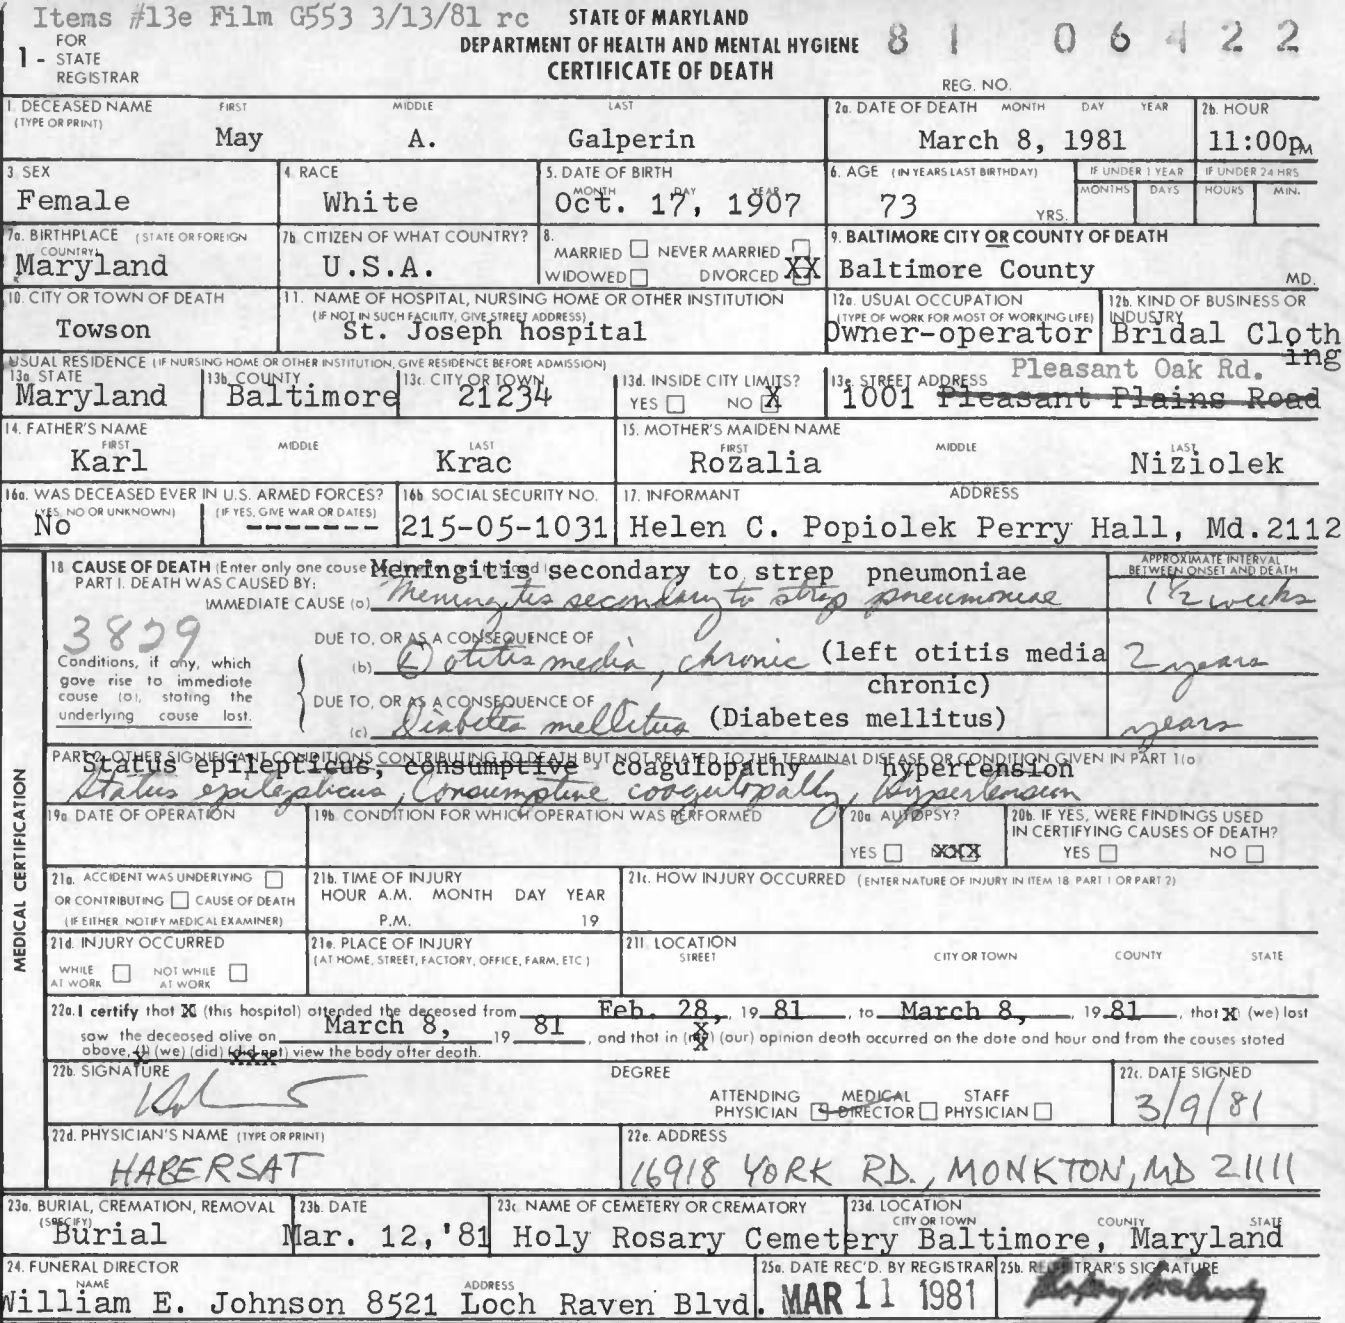 Items #13e Film G553 3/13/81 rc
STATE OF MARYLAND
DEPARTMENT OF HEALTH AND MENTAL HYGIENE
CERTIFICATE OF DEATH
1 - FOR STATE REGISTRAR
81 06422
REG. NO.
1. DECEASED NAME (TYPE OR PRINT) FIRST MIDDLE LAST
May A. Galperin
2a. DATE OF DEATH MONTH DAY YEAR
March 8, 1981
2b. HOUR
11:00PM
3. SEX
Female
4. RACE
White
5. DATE OF BIRTH MONTH DAY YEAR
Oct. 17, 1907
6. AGE (IN YEARS LAST BIRTHDAY)
73 YRS.
IF UNDER 1 YEAR MONTHS DAYS
IF UNDER 24 HRS HOURS MIN.
7a. BIRTHPLACE (STATE OR FOREIGN COUNTRY)
Maryland
7b. CITIZEN OF WHAT COUNTRY?
U.S.A.
8. MARRIED NEVER MARRIED
WIDOWED DIVORCED XX
9. BALTIMORE CITY OR COUNTY OF DEATH
Baltimore County MD.
10. CITY OR TOWN OF DEATH
Towson
11. NAME OF HOSPITAL, NURSING HOME OR OTHER INSTITUTION
(IF NOT IN SUCH FACILITY, GIVE STREET ADDRESS)
St. Joseph hospital
12a. USUAL OCCUPATION
(TYPE OF WORK FOR MOST OF WORKING LIFE)
Owner-operator
12b. KIND OF BUSINESS OR INDUSTRY
Bridal Cloth
ing
USUAL RESIDENCE (IF NURSING HOME OR OTHER INSTITUTION, GIVE RESIDENCE BEFORE ADMISSION)
13a. STATE
Maryland
13b. COUNTY
Baltimore
13c. CITY OR TOWN
21234
13d. INSIDE CITY LIMITS?
YES NO X
13e. STREET ADDRESS
Pleasant Oak Rd.
1001 Pleasant Plains Road
14. FATHER'S NAME FIRST MIDDLE LAST
Karl Krac
15. MOTHER'S MAIDEN NAME FIRST MIDDLE LAST
Rozalia Niziolek
16a. WAS DECEASED EVER IN U.S. ARMED FORCES?
(YES, NO OR UNKNOWN) (IF YES, GIVE WAR OR DATES)
No -------
16b. SOCIAL SECURITY NO.
215-05-1031
17. INFORMANT ADDRESS
Helen C. Popiolek Perry Hall, Md.2112
MEDICAL CERTIFICATION
18. CAUSE OF DEATH (Enter only one cause
Meningitis secondary to strep pneumoniae
PART I. DEATH WAS CAUSED BY:
IMMEDIATE CAUSE (a) Meningitis secondary to strep pneumoniae
APPROXIMATE INTERVAL BETWEEN ONSET AND DEATH
1 1/2 weeks
3829
Conditions, if any, which gave rise to immediate cause (a), stating the underlying cause last.
DUE TO, OR AS A CONSEQUENCE OF
(b) (L) otitis media, chronic (left otitis media 2 years
chronic)
DUE TO, OR AS A CONSEQUENCE OF
(c) Diabetes mellitus (Diabetes mellitus) years
PART 2. OTHER SIGNIFICANT CONDITIONS CONTRIBUTING TO DEATH BUT NOT RELATED TO THE TERMINAL DISEASE OR CONDITION GIVEN IN PART 1(a)
Status epilepticus, consumptive coagulopathy hypertension
Status epilepticus, Consumptive coagulopathy, Hypertension
19a. DATE OF OPERATION
19b. CONDITION FOR WHICH OPERATION WAS PERFORMED
20a. AUTOPSY?
YES XXX
20b. IF YES, WERE FINDINGS USED IN CERTIFYING CAUSES OF DEATH?
YES NO
21a. ACCIDENT WAS UNDERLYING
OR CONTRIBUTING CAUSE OF DEATH
(IF EITHER, NOTIFY MEDICAL EXAMINER)
21b. TIME OF INJURY
HOUR A.M. MONTH DAY YEAR
P.M. 19
21c. HOW INJURY OCCURRED (ENTER NATURE OF INJURY IN ITEM 18 PART 1 OR PART 2)
21d. INJURY OCCURRED
WHILE AT WORK NOT WHILE AT WORK
21e. PLACE OF INJURY
(AT HOME, STREET, FACTORY, OFFICE, FARM, ETC.)
21f. LOCATION
STREET CITY OR TOWN COUNTY STATE
22a. I certify that X (this hospital) attended the deceased from Feb. 28, 1981, to March 8, 1981, that X (we) last
saw the deceased alive on March 8, 1981, and that in (my) (our) opinion death occurred on the date and hour and from the causes stated
above, (I) (we) (did) (did not) view the body after death.
22b. SIGNATURE
DEGREE
ATTENDING PHYSICIAN MEDICAL DIRECTOR STAFF PHYSICIAN
22c. DATE SIGNED
3/9/81
22d. PHYSICIAN'S NAME (TYPE OR PRINT)
HABERSAT
22e. ADDRESS
16918 YORK RD., MONKTON, MD 21111
23a. BURIAL, CREMATION, REMOVAL (SPECIFY)
Burial
23b. DATE
Mar. 12,'81
23c. NAME OF CEMETERY OR CREMATORY
Holy Rosary Cemetery
23d. LOCATION CITY OR TOWN COUNTY STATE
Baltimore, Maryland
24. FUNERAL DIRECTOR
NAME ADDRESS
William E. Johnson 8521 Loch Raven Blvd.
25a. DATE REC'D. BY REGISTRAR
MAR 11 1981
25b. REGISTRAR'S SIGNATURE